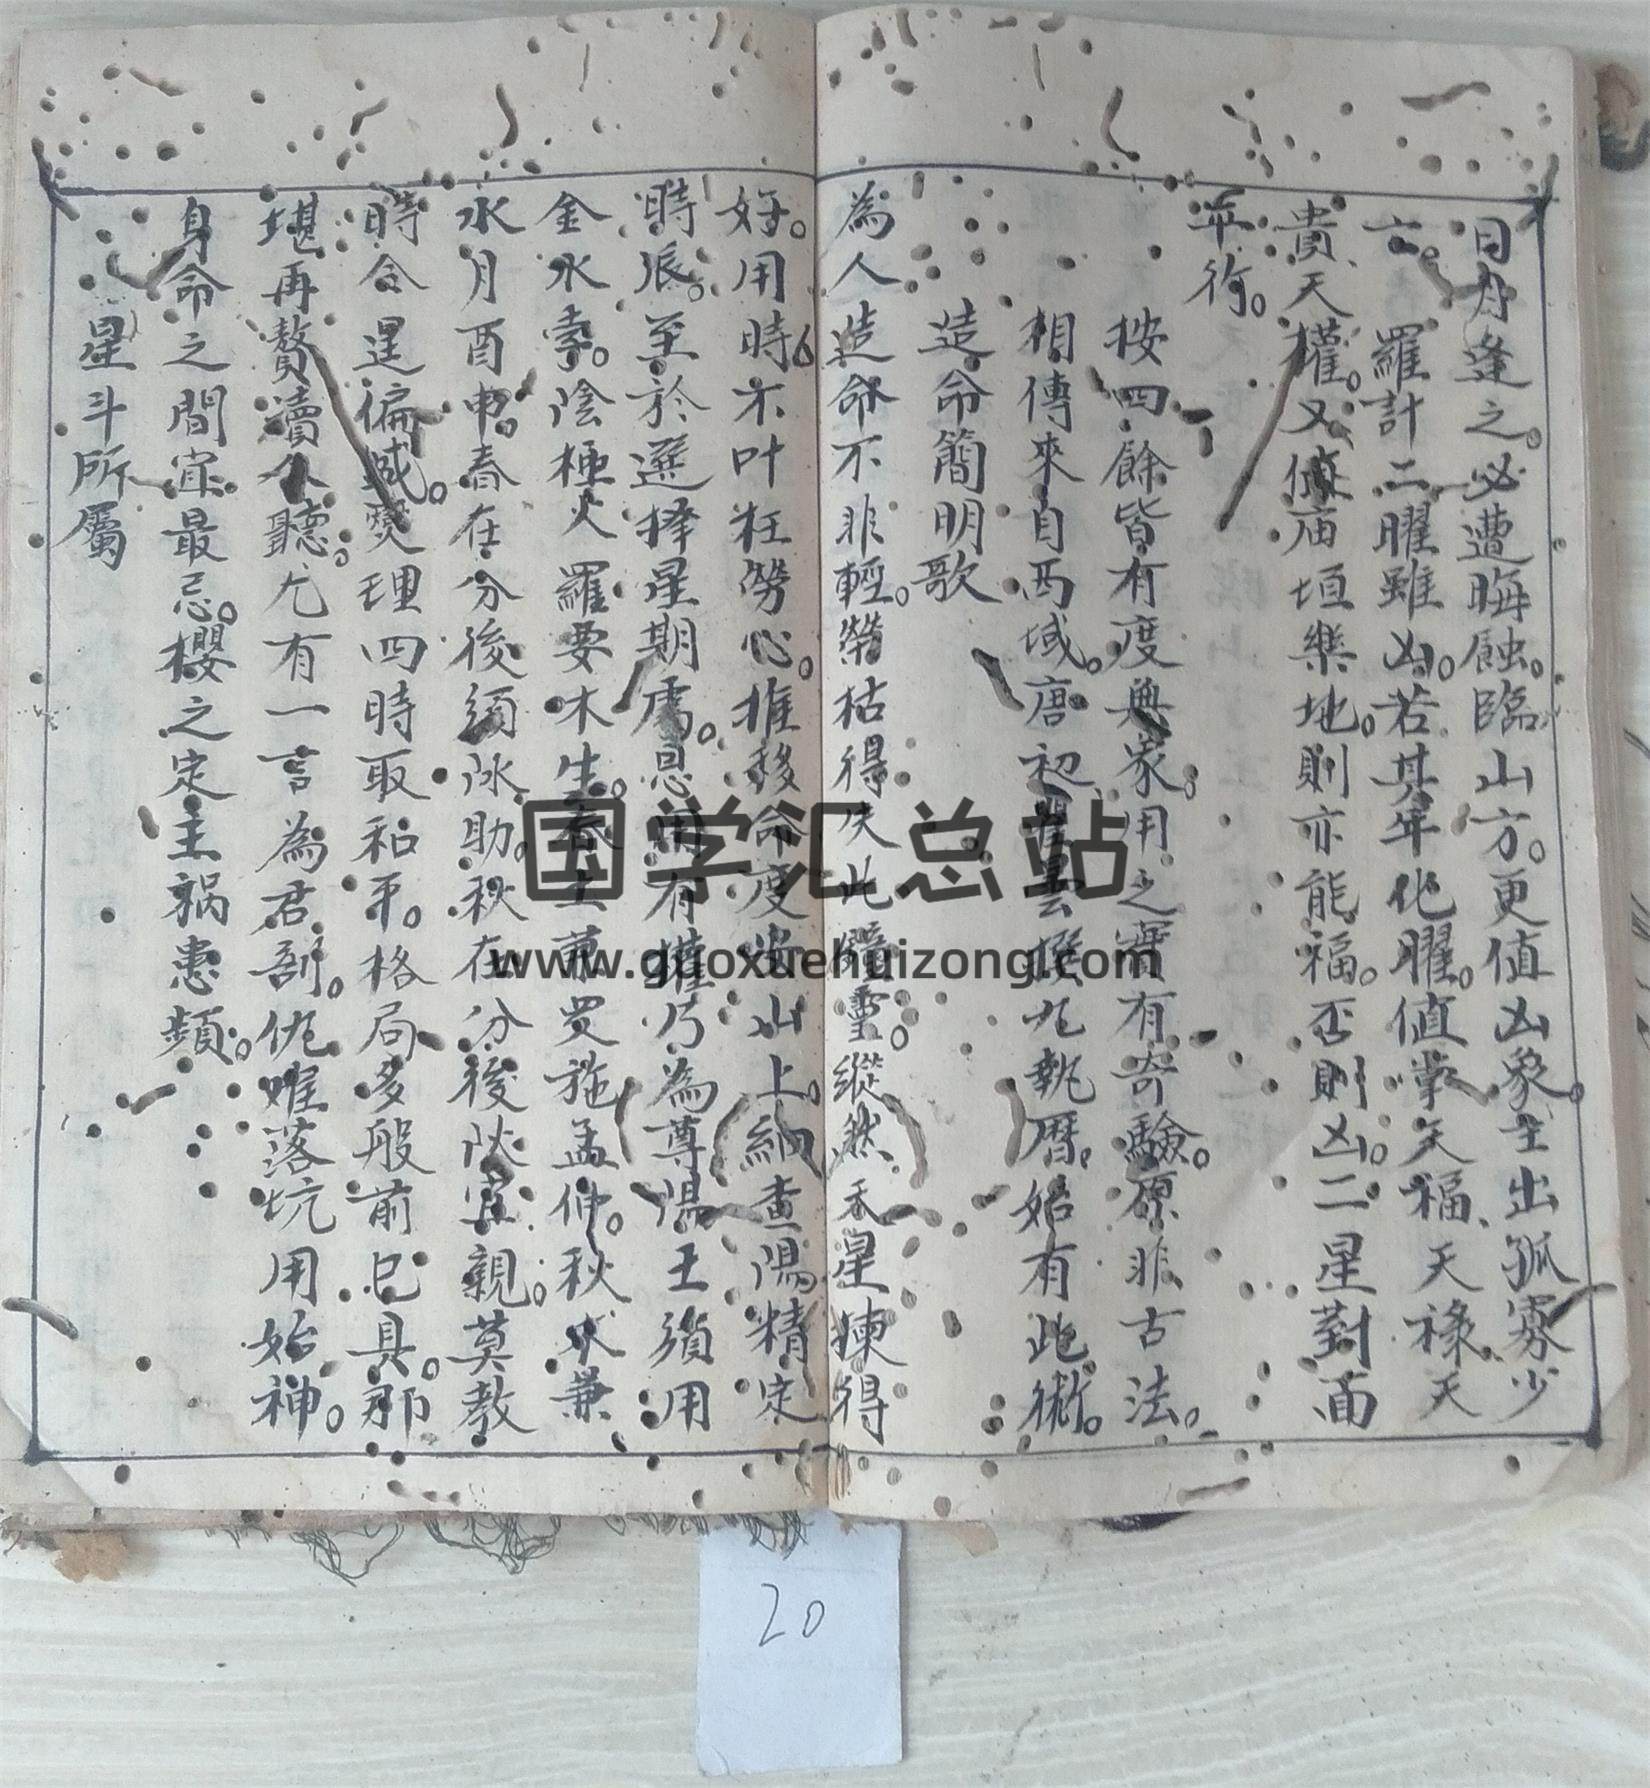 日月逢之。必遭晦蝕。臨山方。更值凶象。主出孤寡少
亡。羅計二曜雖凶。若其年化曜。值掌天福、天祿、天
貴、天權。又值庙垣樂地。則亦能福。否則凶。二星對面
平行。
按四餘皆有度與象。用之實有奇驗。原非古法。
相傳來自西域。唐初瞿曇撰九執曆。始有此術。
造命簡明歌
為人造命不非輕。榮枯得失此靈。縱然禾星揀得
好。用時不叶枉勞心。推移命度安山上。細查陽精定
時辰。至於選擇星期處。恩用有權乃為尊陽王須用
金水索。陰極火羅要木生。春土兼炁施孟仲。秋水兼
水月酉申。春在分後須水助。秋在分後火宜親。莫教
時令逞偏減。燮理四時取和平。格局多般前已具。那
堪再贅瀆人聽。尤有一言為君剖。仇难落坑用始神。
身命之間宜最忌。櫻之定主禍患頻。
星斗所屬
国学汇总站
www.guoxuehuizong.com
20